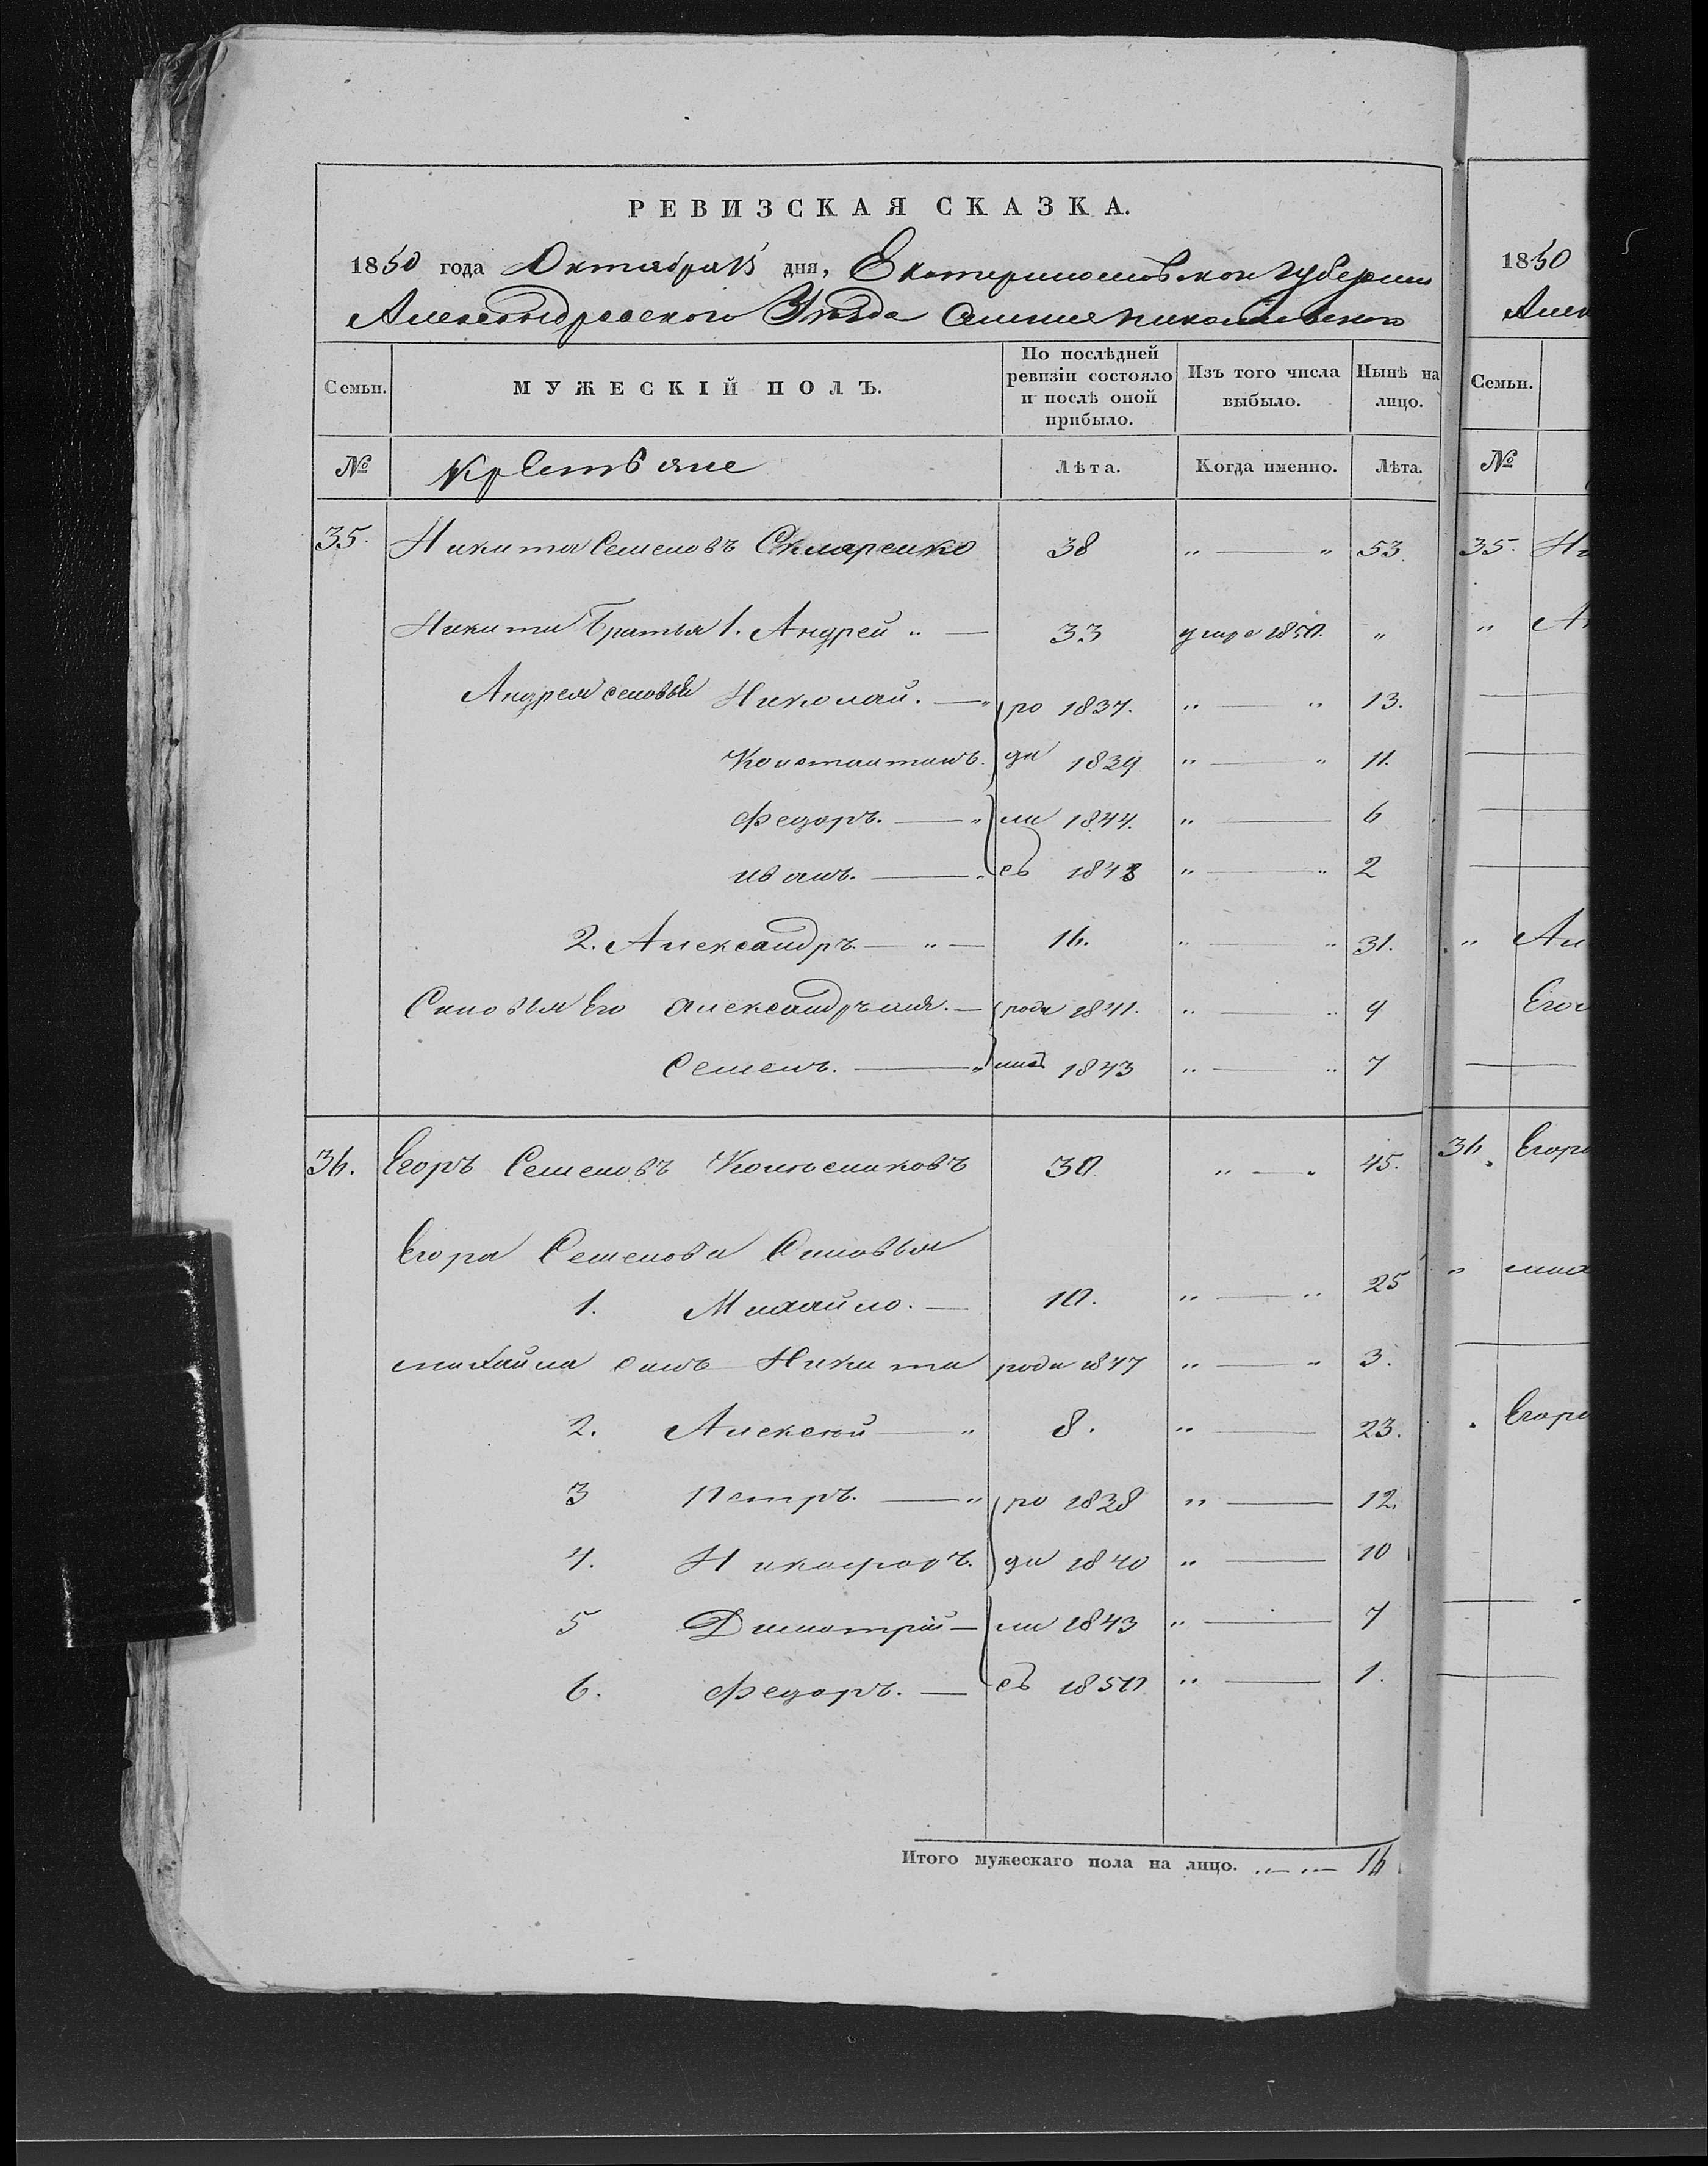 РЕВИЗСКАЯ СКАЗКА.
1850 года Октября 15 дня, Екатеринославской Губернии
Александровского Уѣзда Николаевского
Семьи. МУЖЕСКІЙ ПОЛЪ. По послѣдней ревизіи состояло и послѣ оной прибыло. Изъ того числа выбыло. Нынѣ на лицо.
№ Крестьяне Лѣта. Когда именно. Лѣта.
35. Никита Семеновъ Скляренко 38 " — " 53.
Никиты Братья 1. Андрей " — 33 умре 1850. "
Андрея сыновья Николай. — " ро 1837. " — " 13.
Константинъ. ди 1839 " — " 11.
Федоръ. — " ли 1844. " — 6
иванъ. — " съ 1848 " — " 2
2. Александръ — " — 16. " — " 31.
Сыновья Его — роди 1841. " — " 9
Семенъ. — " лись 1843 " — " 7
36. Егоръ Семеновъ Колесниковъ 30 " — " 45.
Егора Семенова Сыновья
1. Михайло. — 10. " — " 25
михайла сынъ Никита роди 1847 " — " 3.
2. Алексѣй — " 8. " — 23.
3 Петръ. — " ро 1838 " — 12.
4. Никифоръ. ди 1840 " — 10
5 Димитрій — ли 1843 " — 7
6. Федоръ. — съ 1850 " — 1.
Итого мужескаго пола на лицо. " — " — 16
1850
Алек
Семьи.
№
35. Ни
" Ан
" Ал
Его
36. Егор
" мих
Егор